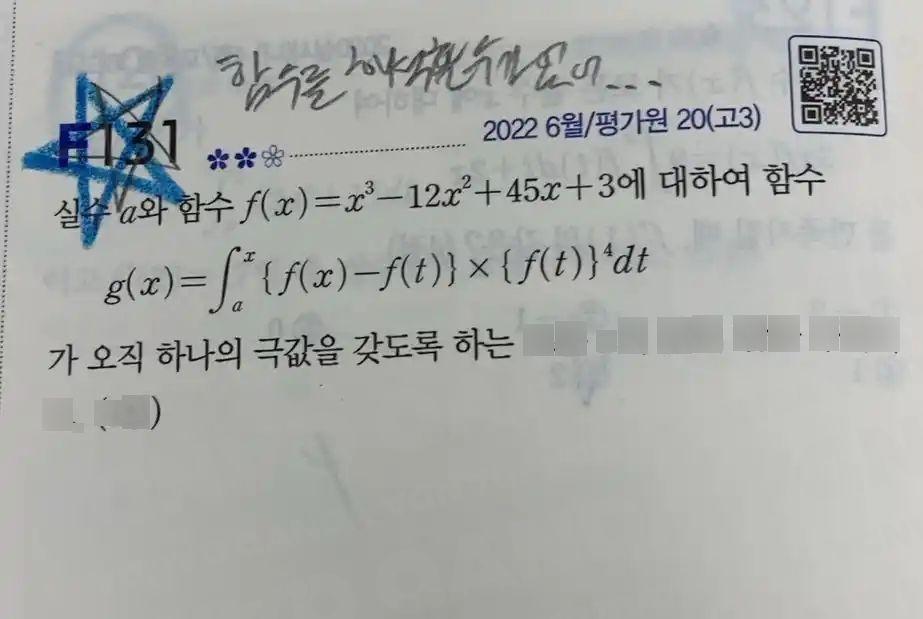 함수를
F131
2022 6월/평가원 20(고3)
실수 a와 함수 f(x)=x³-12x²+45x+3에 대하여 함수
g(x)=∫ₐˣ{f(x)-f(t)}×{f(t)}⁴dt
가 오직 하나의 극값을 갖도록 하는